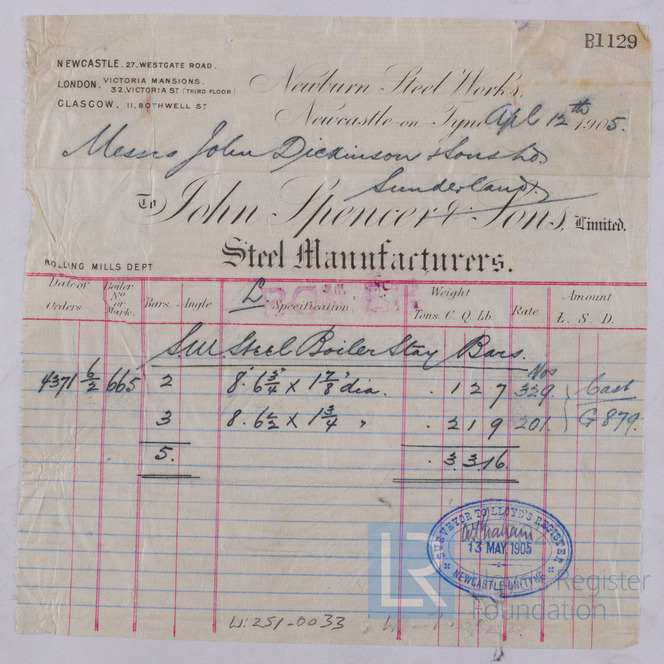 B1129
NEWCASTLE. 27, WESTGATE ROAD.
LONDON, VICTORIA MANSIONS.
32, VICTORIA ST (THIRD FLOOR)
GLASCOW, 11, BOTHWELL ST
Newburn Steel Works,
Newcastle-on-Tyne Apl 12th 1905.
Messrs John Dickinson & Sons Ld.
Sunderland.
To John Spencer & Sons, Limited.
Steel Manufacturers.
ROLLING MILLS DEPT
Date or Orders Boiler No or Mark. Bars. Angle £ Specification Weight Tons. C. Q. Lb. Rate Amount L. S. D.
SM Steel Boiler Stay Bars.
Nos
4371 6/2 665 2 8' 6 3/4" x 1 7/8" dia. . 1 2 7 329 Cast
3 8. 6 1/2 x 1 3/4 " . 2 1 9 201 G 879.
5. . 3 3 16.
SURVEYOR TO LLOYD'S REGISTER
13 MAY 1905
NEWCASTLE-ON-TYNE
LR
Register
Foundation
W.251-0033